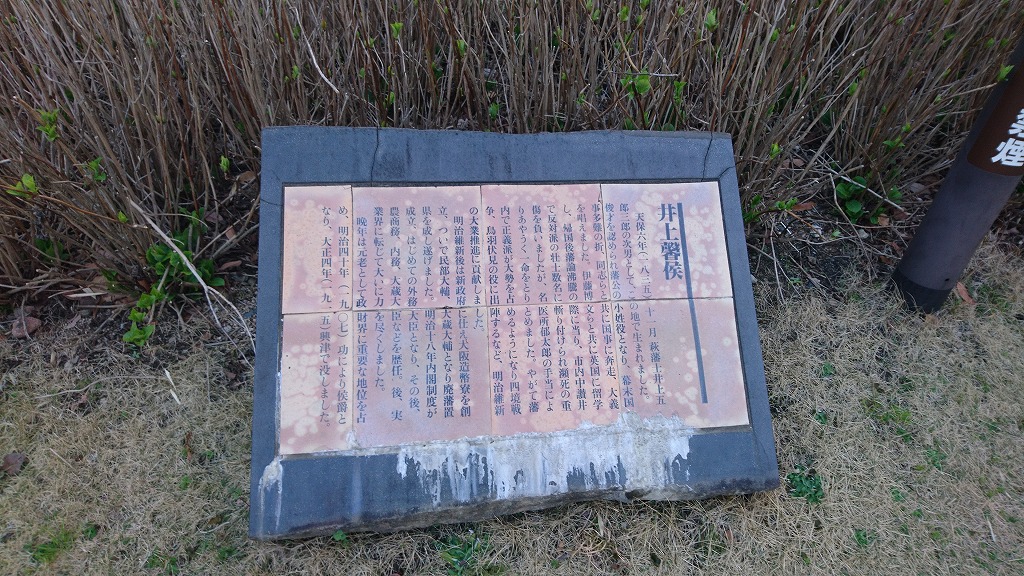 井上馨侯
天保六年(一八三五)十一月萩藩士井上五
郎三郎の次男としてこの地で生まれました。
俊才を認められ藩公の小姓役となり、幕末国
事多難の折、同志らと共に国事に奔走、大義
を唱えました。伊藤博文らと共に英国に留学
し、帰国後藩論沸騰の際に当り、市内中讃井
で反対派の壮士数名に斬り付けられ瀕死の重
傷を負いましたが、名医所郁太郎の手当によ
りあやうく一命をとりとめました。やがて藩
内で正義派が大勢を占めるようになり四境戦
争、鳥羽伏見の役に出陣するなど、明治維新
の大業推進に貢献しました。
明治維新後は新政府に仕え大阪造幣寮を創
立、ついで民部大輔、大蔵大輔となり廃藩置
県を成し遂げました。明治十八年内閣制度が
成立、はじめての外務大臣となり、その後、
農商務、内務、大蔵大臣などを歴任、後、実
業界に転じて大いに力を尽くしました。
晩年は元老として政財界に重要な地位を占
め、明治四十年(一九〇七)功により侯爵と
なり、大正四年(一九一五)興津で没しました。
禁煙